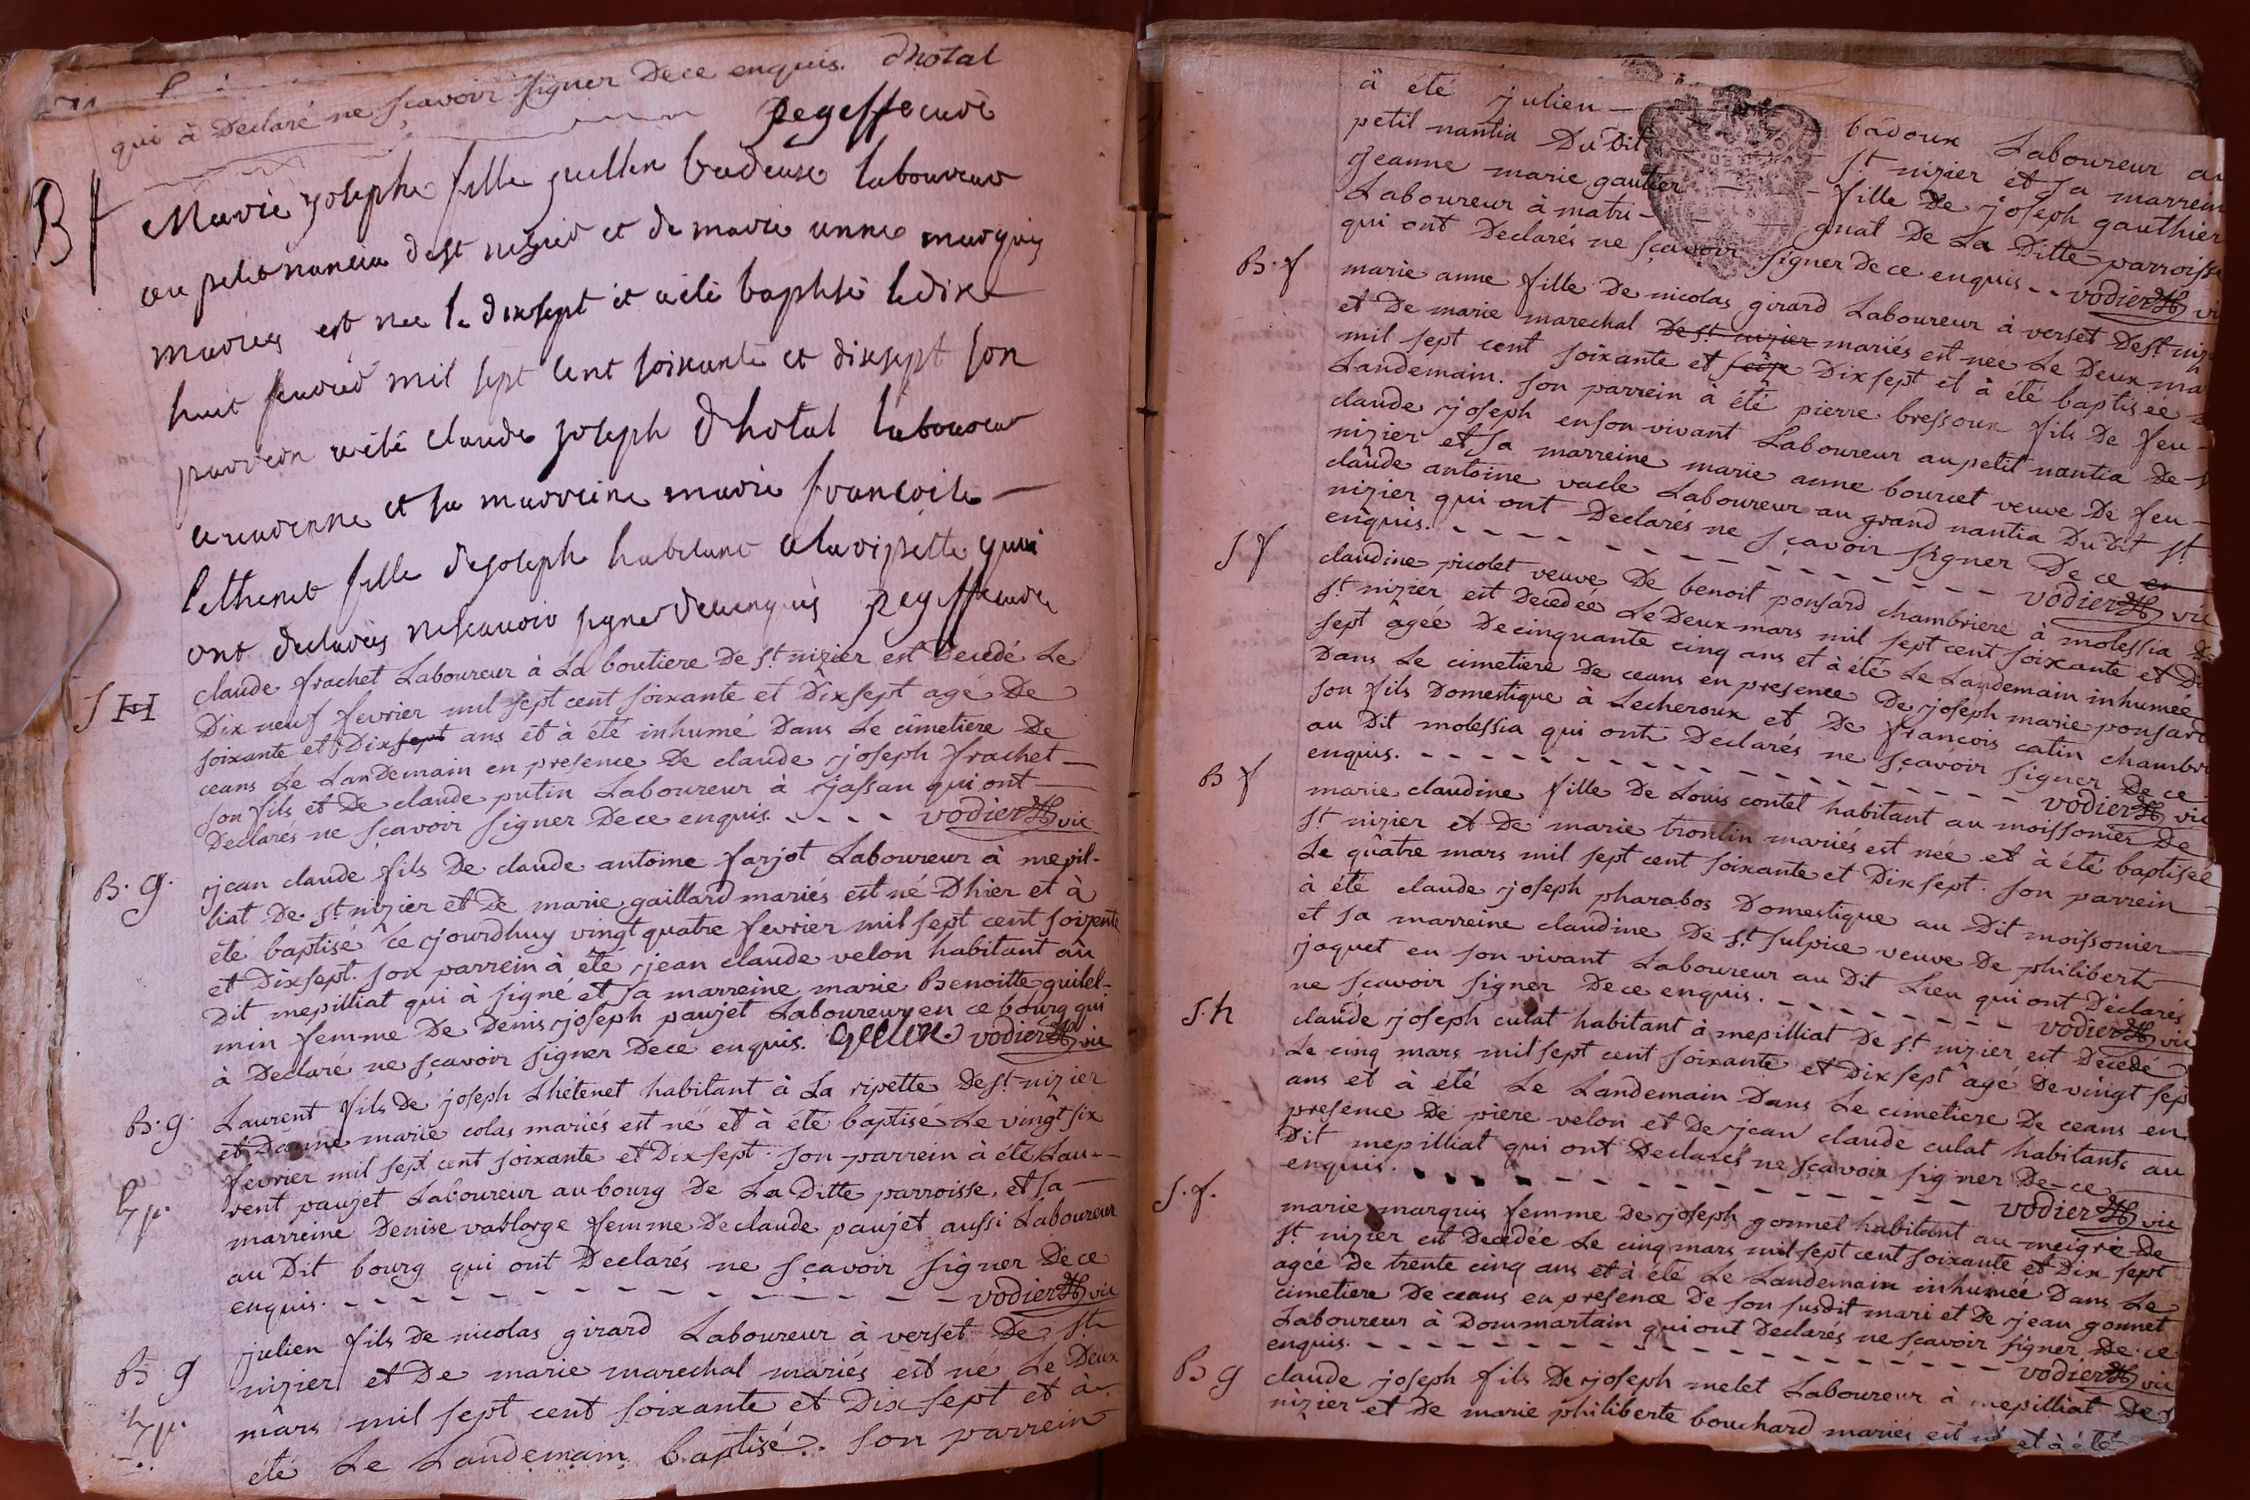 qui à Declaré ne sçavoir signer De ce enquis. Dhotal
pegeffe curé
B f
Marie joseph fille jullien badoux laboureur
au petit nancia de st nizier et de marie anne marquis
mariés est nee le dixsept et a eté baptisé le dix
huit fevrier mil sept cent soixante et dixsept son
parrein a eté claude joseph Dhotal laboureur
et sa marreine marie francoise
Lethenet fille de joseph habitant a la ripette qui
ont declarés ne scavoir signer de ce enquis pegeffe curé
S H
claude frachet Laboureur à La boutiere De st nizier est Decedé Le
Dix neuf fevrier mil sept cent soixante et Dixsept agé De
soixante et Dix sept ans et à été inhumé Dans Le cimetiere De
ceans Le Landemain en presence De claude joseph frachet
son fils et De claude putin Laboureur à jassan qui ont
Declarés ne sçavoir signer De ce enquis. vodier vic
B. g.
jean claude fils De claude antoine farjot Laboureur à mepil-
liat De st nizier et De marie gaillard mariés est né D'hier et à
été baptisé ce jourdhuy vingt quatre fevrier mil sept cent soixente
et Dixsept. son parrein à été jean claude velon habitant au
Dit mepilliat qui à signé et sa marreine marie Benoitte guilel-
min femme De Denis joseph paujet Laboureur en ce bourg qui
à Declaré ne sçavoir signer De ce enquis. vodier vic
B. g.
Laurent fils De joseph Lhétenet habitant à La ripette De st nizier
et Danne marie colas mariés est né et à été baptisé Le vingt six
fevrier mil sept cent soixante et Dixsept. son parrein à été Lau-
rent paujet Laboureur au bourg De La Ditte parroisse, et sa
marreine Denise vatlarge femme De claude paujet aussi Laboureur
au Dit bourg qui ont Declarés ne sçavoir signer De ce
enquis. vodier vic
B g
julien fils de nicolas girard Laboureur à verset De st
nizier et De marie marechal mariés est né Le Deux
mars mil sept cent soixante et Dixsept et à
été Le Landemain baptisé. son parrein
à été julien badoux Laboureur au
petit nantia Du Dit st nizier et sa marreine
jeanne marie gautier fille De joseph gauthier
Laboureur à matri-gnat De La Ditte parroisse
qui ont Declarés ne sçavoir signer De ce enquis vodier vic
B. f
marie anne fille De nicolas girard Laboureur à verset De st niz
et De marie marechal De st nizier mariés est née Le Deux ma
mil sept cent soixante et seize Dixsept et à été baptisée
Landemain. son parrein à été pierre bressoux fils De feu
claude joseph en son vivant Laboureur au petit nantia De
nizier et sa marreine marie anne bourcet veuve De feu
claude antoine vacle Laboureur au grand nantia Du Dit st
nizier qui ont Declarés ne sçavoir signer De ce en
enquis. vodier vic
S f
claudine picolet veuve De benoit ponsard chambriere à molessia De
st nizier est Decedée Le Deux mars mil sept cent soixante et Di
sept agée De cinquante cinq ans et à été Le Landemain inhumée
Dans Le cimetiere De ceans en presence De joseph marie ponsard
son fils Domestique à Lecheroux et De francois catin chambri
au Dit molessia qui ont Declarés ne sçavoir signer De ce
enquis. vodier vic
B f
marie claudine fille De Louis contet habitant au moissonier De
st nizier et De marie trontin mariés est née et à été baptisée
Le quatre mars mil sept cent soixante et Dixsept. son parrein
à été claude joseph pharabos Domestique au Dit moissonier
et sa marreine claudine De st sulpice veuve De philibert
jaquet en son vivant Laboureur au Dit Lieu qui ont Déclarés
ne sçavoir signer De ce enquis. vodier vic
S. h
claude joseph culat habitant à mepilliat De st nizier est Decedé
Le cinq mars mil sept cent soixante et Dixsept agé De vingt sep
ans et à été Le Landemain Dans Le cimetiere De ceans en
presence De piere velon et De jean claude culat habitants au
Dit mepilliat qui ont Declarés ne sçavoir signer De ce
enquis. vodier vic
S. f.
marie marquis femme De joseph gonnet habitant au meigre De
st nizier est Decedée Le cinq mars mil sept cent soixante et Dix sept
agée De trente cinq ans et à été Le Landemain inhumée Dans Le
cimetiere De ceans en presence De son susdit mari et De jean gonnet
Laboureur à Dommartain qui ont Declarés ne sçavoir signer De ce
enquis. vodier vic
B g
claude joseph fils De joseph melet Laboureur à mepilliat De s
nizier et De marie philiberte bouchard mariés est né et à été